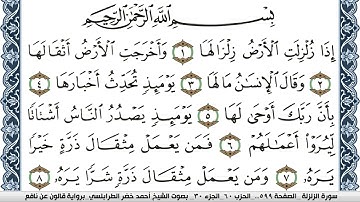 بِسْمِ اللَّهِ الرَّحْمَٰنِ الرَّحِيمِ
إِذَا زُلْزِلَتِ الْأَرْضُ زِلْزَالَهَا ١ وَأَخْرَجَتِ الْأَرْضُ أَثْقَالَهَا
٢ وَقَالَ الْإِنسَٰنُ مَا لَهَا ٣ يَوْمَئِذٍ تُحَدِّثُ أَخْبَارَهَا ٤
بِأَنَّ رَبَّكَ أَوْحَىٰ لَهَا ٥ يَوْمَئِذٍ يَصْدُرُ النَّاسُ أَشْتَاتًا
لِّيُرَوْا أَعْمَٰلَهُمْ ٦ فَمَن يَعْمَلْ مِثْقَالَ ذَرَّةٍ خَيْرًا
يَرَهُ ٧ وَمَن يَعْمَلْ مِثْقَالَ ذَرَّةٍ شَرًّا يَرَهُ ٨
سورة الزلزلة . الصفحة ٥٩٩ .. الحزب ٦٠ الجزء ٣٠ . بصوت الشيخ أحمد خضر الطرابلسي . برواية قالون عن نافع